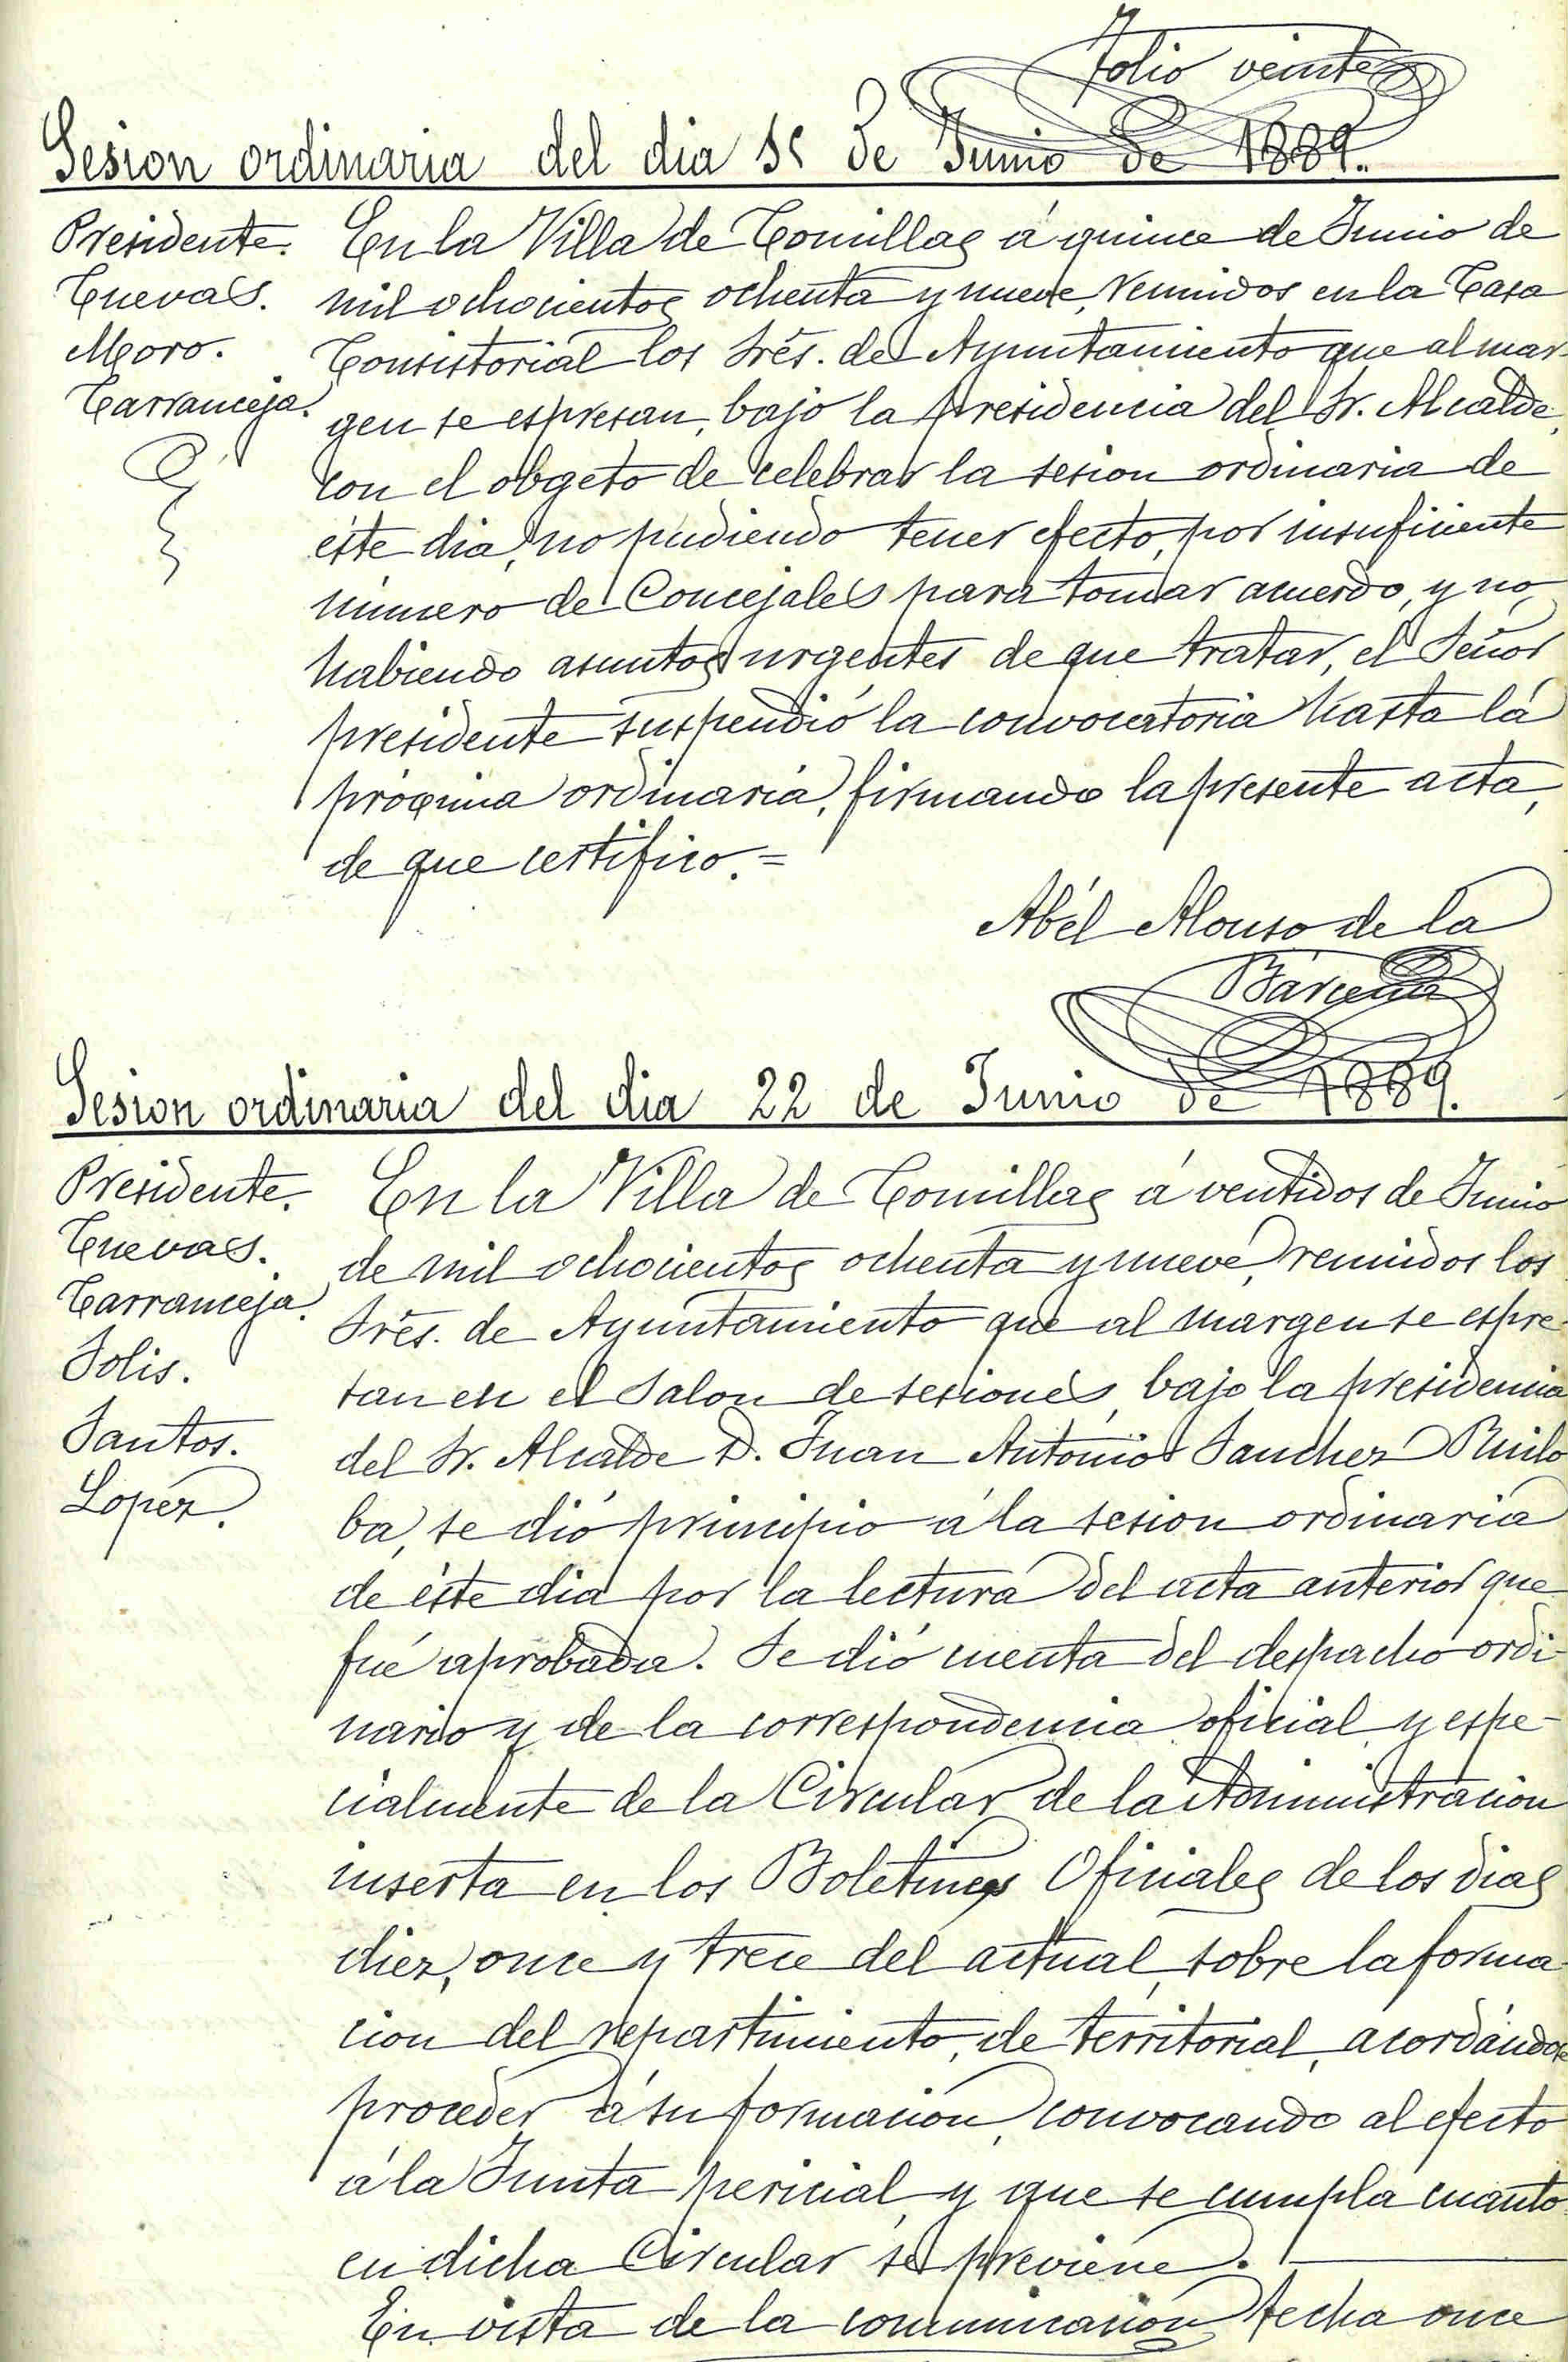 Folio veinte
Sesion ordinaria del dia 15 de Junio de 1889.
Presidente.
Cuevas.
Moro.
Carranceja.
En la Villa de Comillas á quince de Junio de
mil ochocientos ochenta y nueve, reunidos en la Casa
Consistorial los Srés. de Ayuntamiento que al mar-
gen se espresan, bajo la presidencia del Sr. Alcalde,
con el obgeto de celebrar la sesion ordinaria de
éste dia, no pudiendo tener efecto, por insuficiente
número de Concejales para tomar acuerdo, y no
habiendo asuntos urgentes de que tratar, el Señor
presidente suspendió la convocatoria hasta la
próxima ordinaria, firmando la presente acta,
de que certifico.=
Abél Alonso de la
Bárcena
Sesion ordinaria del dia 22 de Junio de 1889.
Presidente.
Cuevas.
Carranceja.
Solis.
Santos.
Lopez.
En la Villa de Comillas á ventidos de Junio
de mil ochocientos ochenta y nueve, reunidos los
Srés. de Ayuntamiento que al margen se espre-
san en el Salon de sesiones, bajo la presidencia
del Sr. Alcalde D. Juan Antonio Sanchez Ruilo
ba, se dió principio á la sesion ordinaria
de éste dia por la lectura del acta anterior que
fué aprobada. Se dió cuenta del despacho ordi-
nario y de la correspondencia oficial y espe-
cialmente de la Circular de la Administracion
inserta en los Boletines Oficiales de los dias
diez, once y trece del actual, sobre la forma-
cion del repartimiento, de territorial, acordándose
proceder á su formacion, convocando al efecto
á la Junta pericial, y que se cumpla cuanto
en dicha Circular se previene.
En vista de la comunicacion fecha once